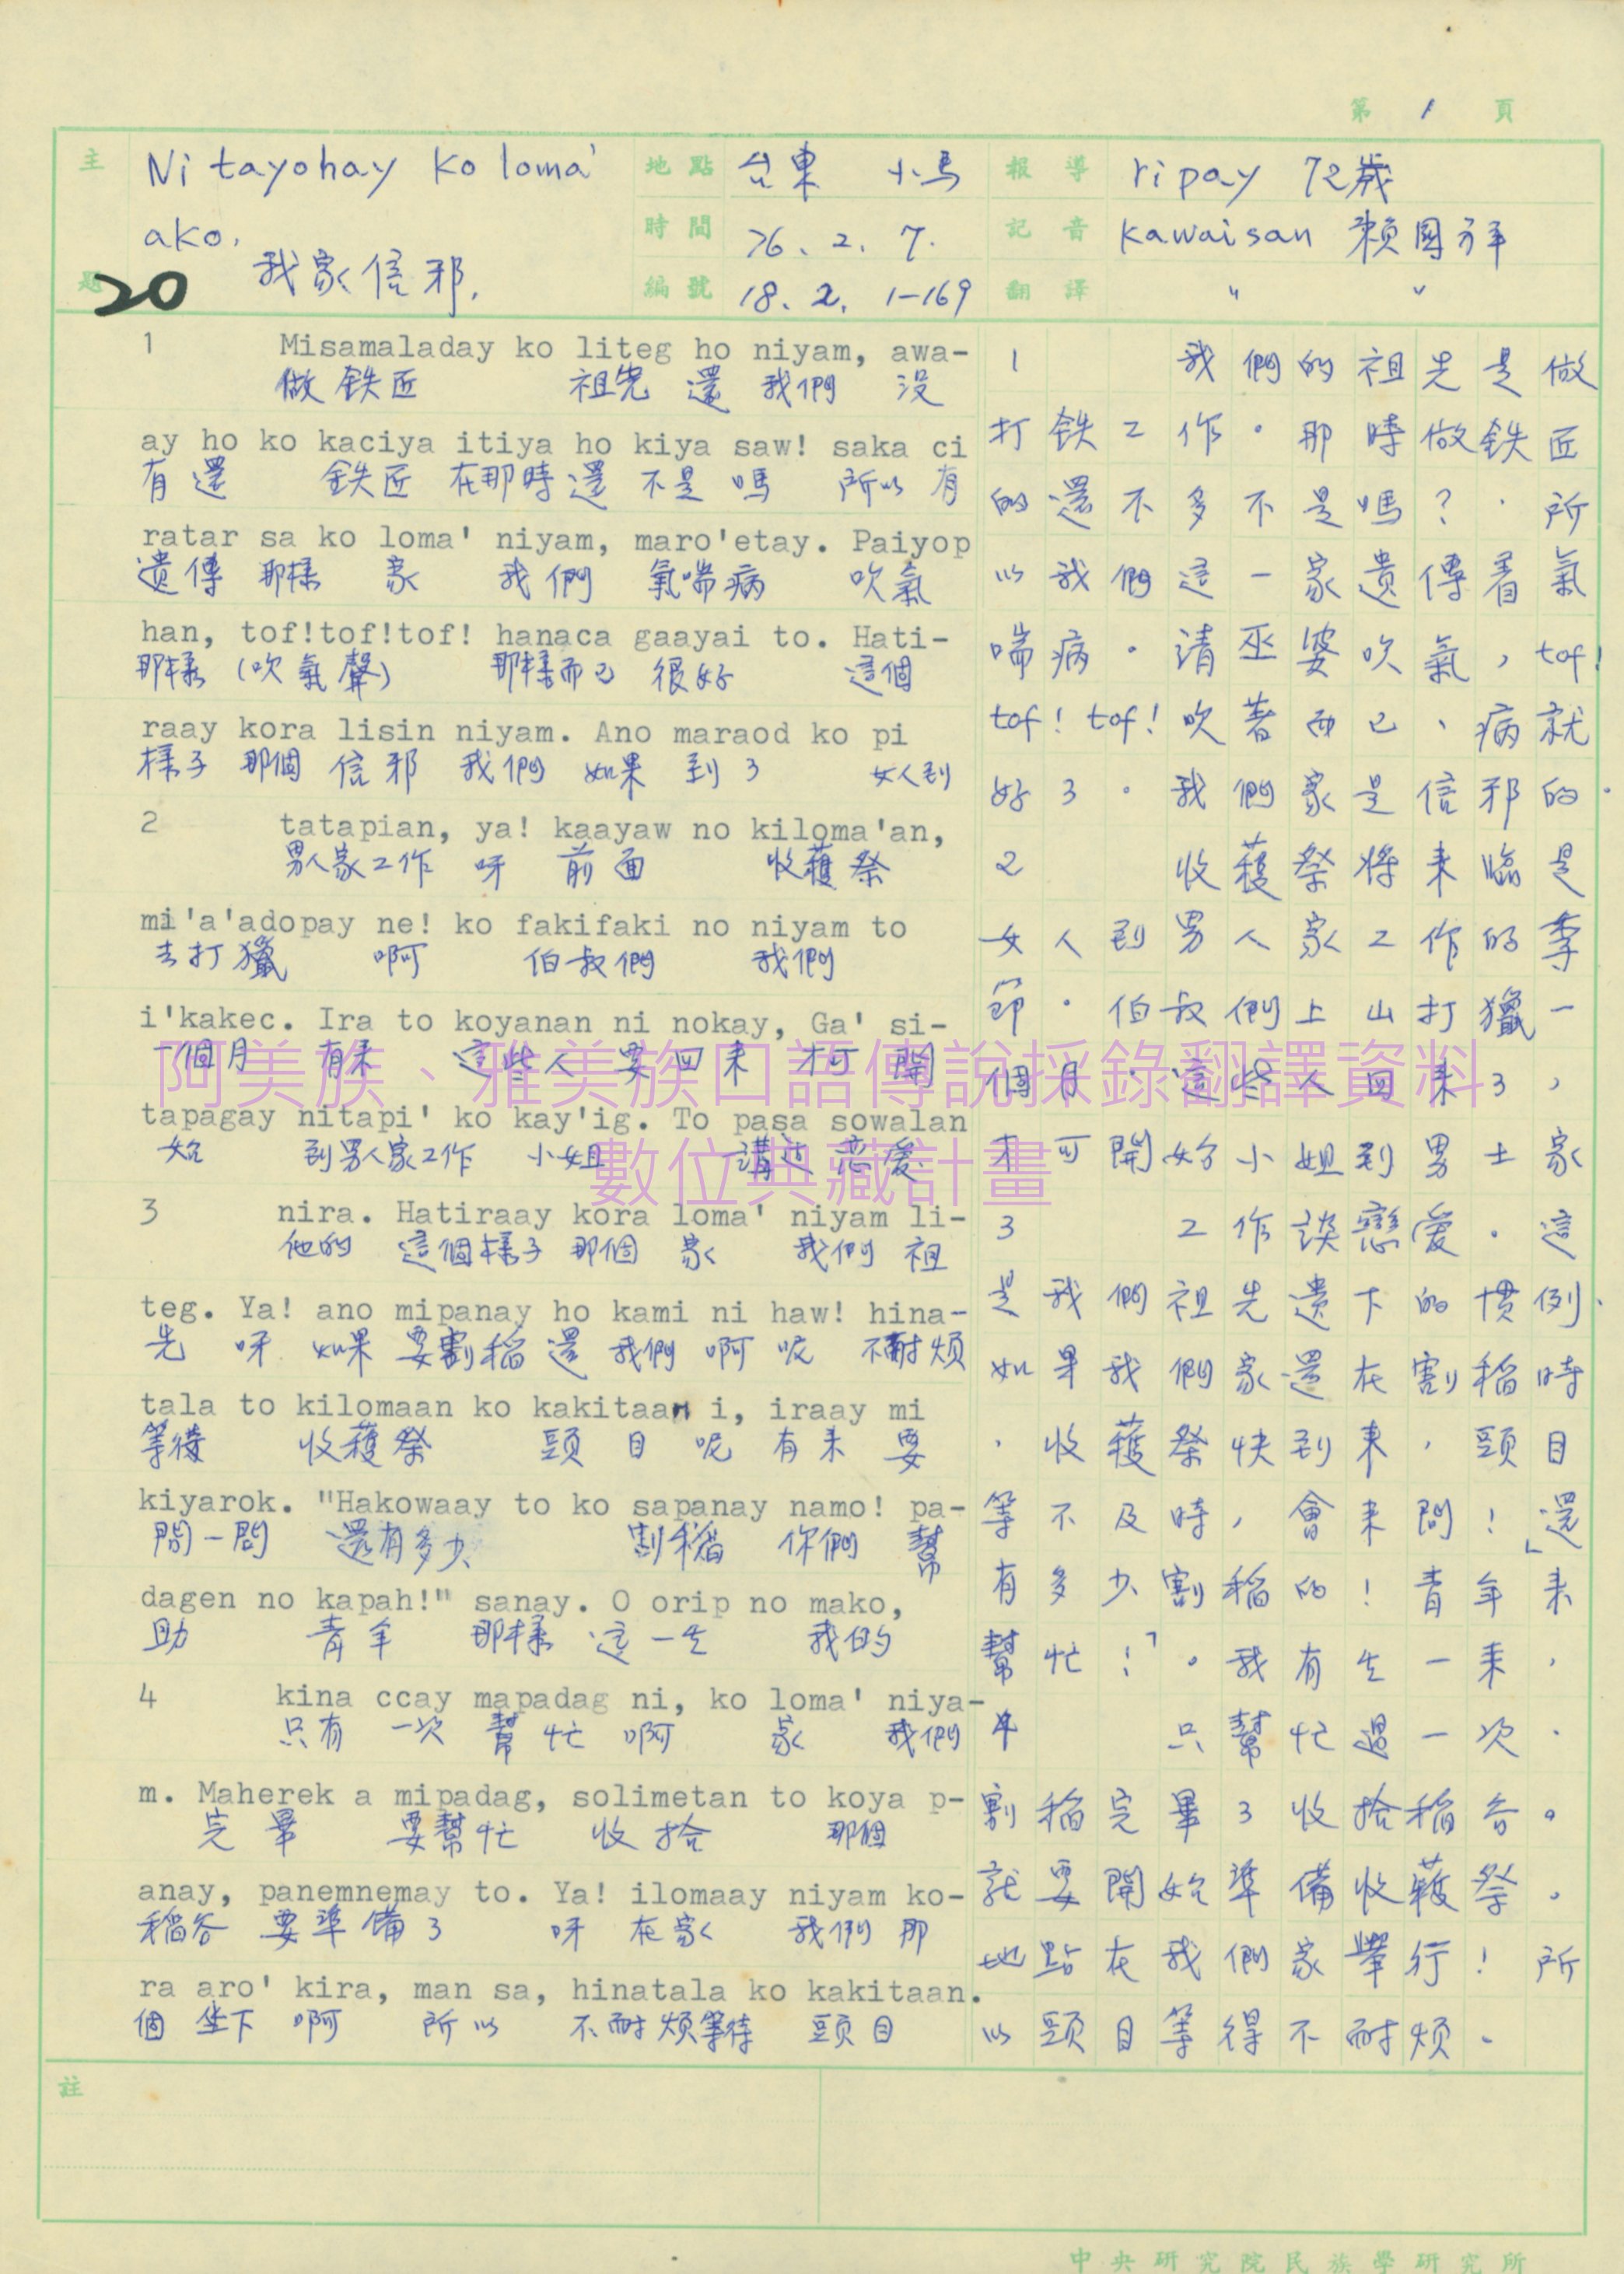 第 1 頁
主題 Ni tayohay ko loma' ako. 我家信邪.
20
地點 台東 小馬
時間 76. 2. 7.
編號 18. 2. 1-169
報導 ripay 72歲
記音 kawaisan 賴國祥
翻譯 〃 〃
1 Misamaladay ko liteg ho niyam, awa-
做鉄匠 祖先 還 我們 沒
ay ho ko kaciya itiya ho kiya saw! saka ci
有 還 鉄匠 在那時還 不是 嗎 所以 有
ratar sa ko loma' niyam, maro'etay. Paiyop
遺傳 那樣 家 我們 氣喘病 吹氣
han, tof!tof!tof! hanaca gaayai to. Hati-
那樣 (吹氣聲) 那樣而已 很好 這個
raay kora lisin niyam. Ano maraod ko pi
樣子 那個 信邪 我們 如果 到了 女人到
2 tatapian, ya! kaayaw no kiloma'an,
男人家工作 呀 前面 收穫祭
mi'a'adopay ne! ko fakifaki no niyam to
去打獵 啊 伯叔們 我們
i'kakec. Ira to koyanan ni nokay, Ga' si-
一個月 有來 這些人 要回來 才可 開
tapagay nitapi' ko kay'ig. To pasa sowalan
始 到男人家工作 小姐 講述 恋愛
3 nira. Hatiraay kora loma' niyam li-
他的 這個樣子 那個 家 我們 祖
teg. Ya! ano mipanay ho kami ni haw! hina-
先 呀 如果 要割稻 還 我們 啊 呢 不耐煩
tala to kilomaan ko kakitaan i, iraay mi
等待 收穫祭 頭目 呢 有來 要
kiyarok. "Hakowaay to ko sapanay namo! pa-
問一問 還有多少 割稻 你們 幫
dagen no kapah!" sanay. O orip no mako,
助 青年 那樣 這一生 我的
4 kina ccay mapadag ni, ko loma' niya-
只有 一次 幫忙 啊 家 我們
m. Maherek a mipadag, solimetan to koya p-
完畢 要幫忙 收拾 那個
anay, panemnemay to. Ya! ilomaay niyam ko-
稻谷 要準備了 呀 在家 我們 那
ra aro' kira, man sa, hinatala ko kakitaan.
個 坐下 啊 所以 不耐煩等待 頭目
1 我們的祖先是做
打鉄工作。那時做鉄匠
的還不多不是嗎?.所
以我們這一家遺傳着氣
喘病。請巫婆吹氣,tof!
tof!tof!吹著而已、病就
好了。我們家是信邪的.
2 收穫祭將來臨是
女人到男人家工作的季
節。伯叔們上山打獵一
個月.這些人回來了,
才可開始小姐到男士家
3 工作談戀愛.這
是我們祖先遺下的慣例.
如果我們家還在割稻時
,收穫祭快到來,頭目
等不及時,會來問!「還
有多少割稻的!青年來
幫忙!」。我有生一來,
4 只幫忙過一次.
割稻完畢了收拾稻谷。
就要開始準備收穫祭.
地點在我們家舉行!所
以頭目等得不耐煩.
註
阿美族、雅美族口語傳說採錄翻譯資料
數位典藏計畫
中央研究院民族學研究所